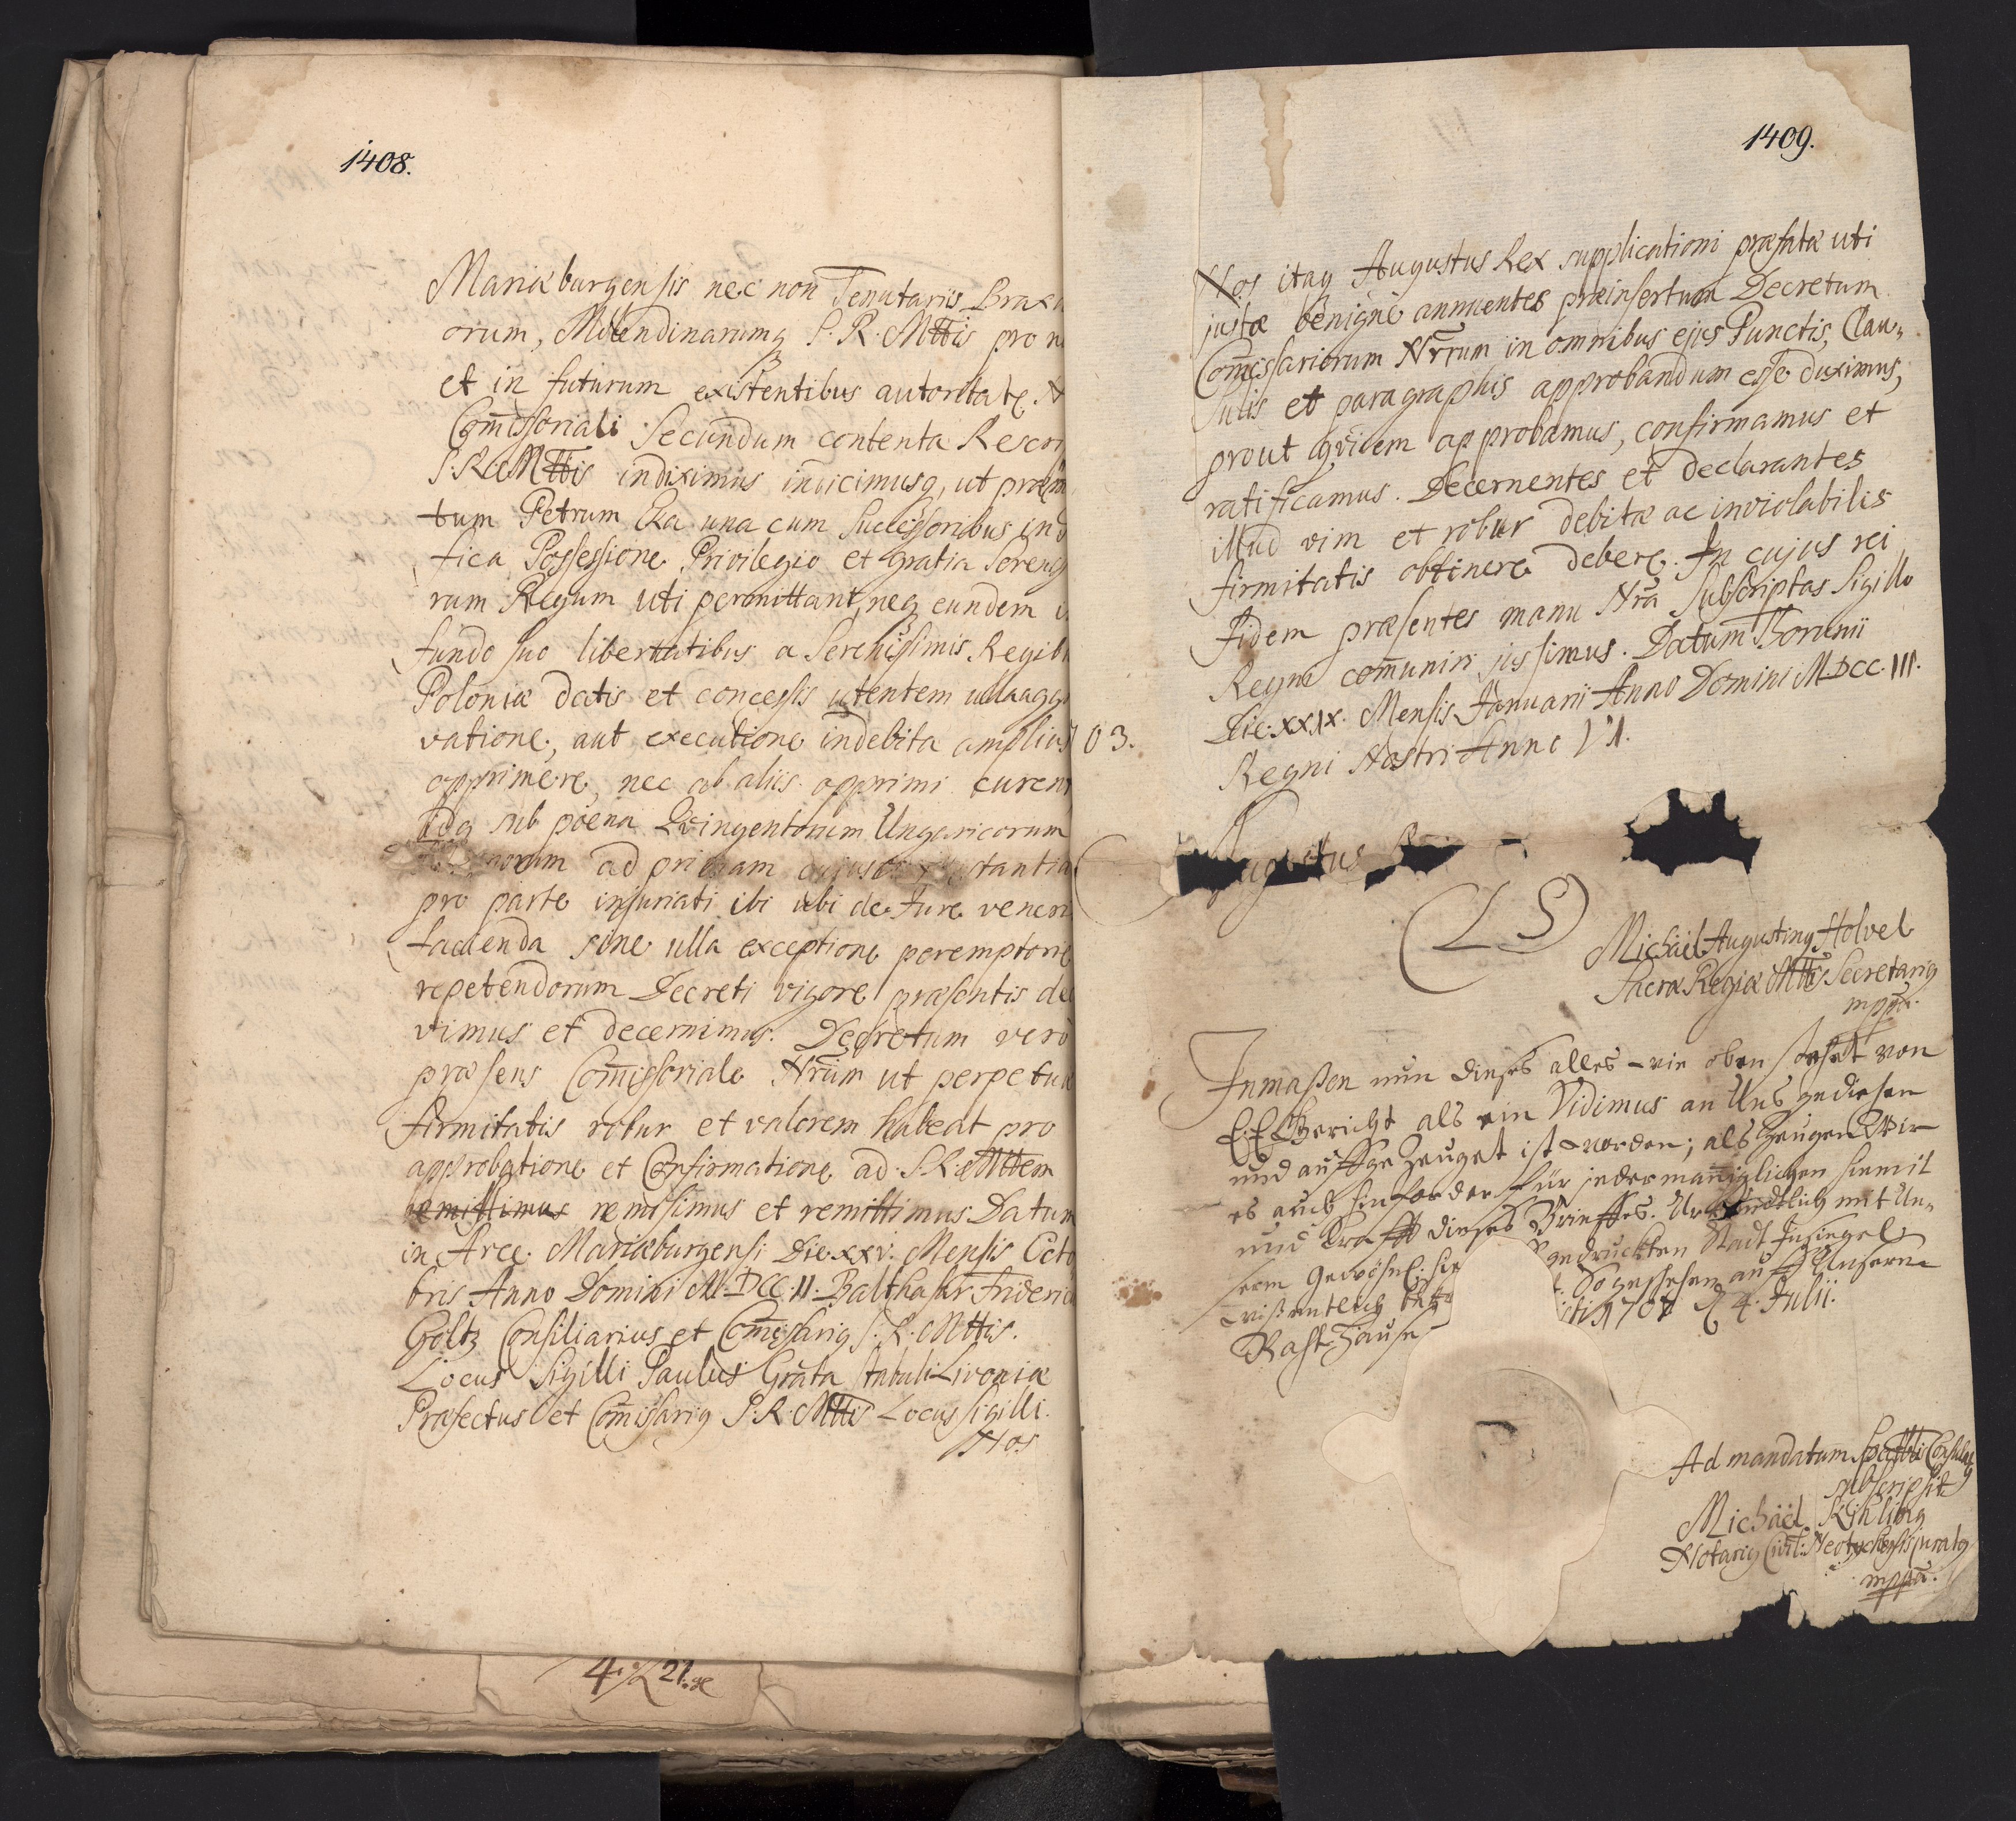 1408.
Mariæburgensis nec non Tenutariis Braxa
orum, Molendinarumq S. R. Mttis pro n
et in futurum existentibus autoritate N
Com̄issoriali Secundum contenta Rescri
S. R. Mttis indiximus indicimusq, ut præm
tum Petrum Ea una cum Successoribus in
fica Possessione Privilegio et gratia Sereniss
rum Regum uti permittant, neq eundem
fundo suo libertatibus a Serenissimis Regib
Poloniæ datis et concessis utentem ulla aggr
vatione, aut executione indebita amplius
opprimere, nec ab aliis opprimi curent
Idq sub poena Quingentorum Ungaricorum
ad primam stantia
pro parte injuriati ibi ubi de Jure veneri
facienda sine ulla exceptione peremptorie
repetendorum Decreti vigore præsentis de
vimus et decernimus. Decretum vero
præsens Com̄issoriale Nrūm ut perpetuæ
firmitatis robur et valorem habeat pro
approbatione et Confirmatione ad S. R. Mttem
remittimus remisimus et remittimus Datum
in Arce Mariæburgensi Die XXV. Mensis Octo
bris Anno Domini M. DCC. II. Balthasar Frideric
Goltz Consiliarius et Com̄issariq S. R. Mttis.
Locus Sigilli Paulus Grata Stabuli Livoniæ
Præfectus et Com̄issariq S. R. Mttis Locus sigilli.
Nos
4. 21.
1409.
Nos itaq Augustus Rex supplicationi præfatæ uti
justæ benigne annuentes præinsertum Decretum
Com̄issariorum Nrrum in omnibus ejus Punctis, Clau„
sulis et paragraphis approbandum esse duximus,
prout qvidem approbamus, confirmamus et
ratificamus. Decernentes et declarantes
illud vim et robur debitæ ac inviolabilis
firmitatis obtinere debere. In cujus rei
fidem præsentes manu Nrā Subscriptas Sigillo
Regni com̄uniri jussimus. Datum Thorunii
Die XXIX. Mensis Januarii Anno Domini M. DCC. III.
03.
Regni Nostri Anno VI.
Augustus R
(L S)
Michäel Augustinq Holvel
Sacræ Regiæ Mttis Secretariq
mppa.
Inmaßen nun dieses alles wie oben stehet von
E. E. Gericht als ein Vidimus an Uns gediehen
und auffgezeuget ist worden; als zeugen Wir
es auch hinforder für jedermänniglichen hiemit
und Krafft dieses Brieffes. Urkundtlich mit Un„
serm gewöhnl. hie gedruckten Stadt Insiegel
wissentlich So geschehen auff Unserm
Rahthause 170 d 4. Julii.
Ad mandatum Spectbli Consulatq
subscripsit
Michäel
Notariq Civit: juratq
mppa.